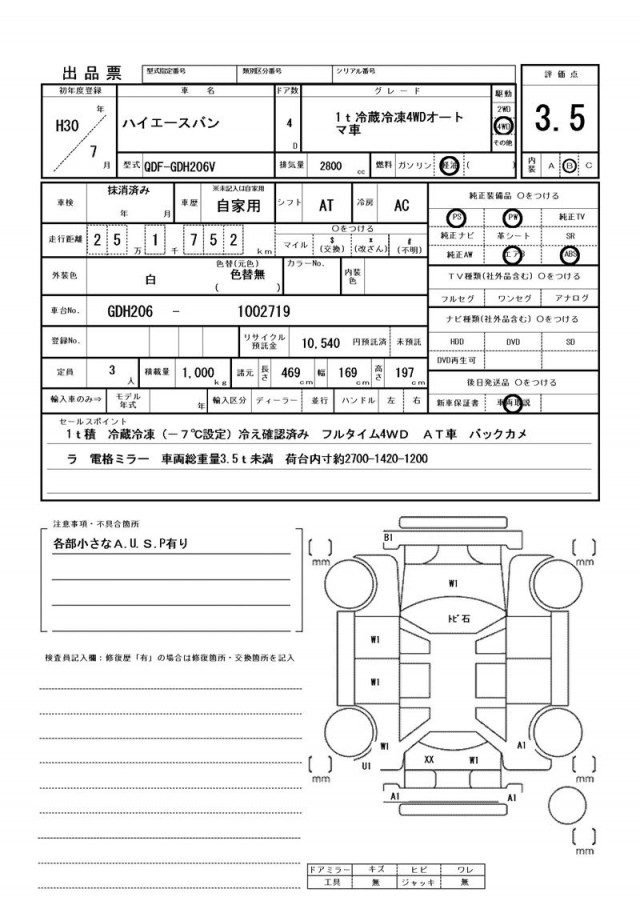 出品票 型式指定番号 類別区分番号 シリアル番号
初年度登録 車名 ドア数 グレード 駆動 評価点
H30 年 7 月 ハイエースバン 4 D 1t冷蔵冷凍4WDオート
マ車
2WD
4WD
その他
3.5
型式 QDF-GDH206V 排気量 2800 cc 燃料 ガソリン 軽油 ( ) 内装 A B C
車検 抹消済み 年 月 車歴 ※未記入は自家用 自家用 シフト AT 冷房 AC
走行距離 2 5 万 1 千 7 5 2 km
〇をつける
マイル $(交換) *(改ざん) #(不明)
外装色 白 色替(元色) 色替無 ( ) カラーNo. 内装色
車台No. GDH206 - 1002719
登録No. リサイクル預託金 10,540 円預託済 未預託
定員 3 人 積載量 1,000 kg 諸元 長さ 469 cm 幅 169 cm 高さ 197 cm
輸入車のみ⇒ モデル年式 年 輸入区分 ディーラー 並行 ハンドル 左 右
純正装備品 〇をつける
PS PW 純正TV
純正ナビ 革シート SR
純正AW エアB ABS
TV種類(社外品含む) 〇をつける
フルセグ ワンセグ アナログ
ナビ種類(社外品含む) 〇をつける
HDD DVD SD
DVD再生可
後日発送品 〇をつける
新車保証書 車両取説
セールスポイント
1t積 冷蔵冷凍(-7℃設定)冷え確認済み フルタイム4WD AT車 バックカメ
ラ 電格ミラー 車両総重量3.5t未満 荷台内寸約2700-1420-1200
注意事項・不具合箇所
各部小さなA.U.S.P有り
検査員記入欄:修復歴「有」の場合は修復箇所・交換箇所を記入
B1
[ ] mm [ ] mm
W1
トビ石
W1
W1
W1 A1
U1 XX W1
[ ] mm [ ] mm
A1 A1
[ ] mm
ドアミラー キズ ヒビ ワレ
工具 無 ジャッキ 無